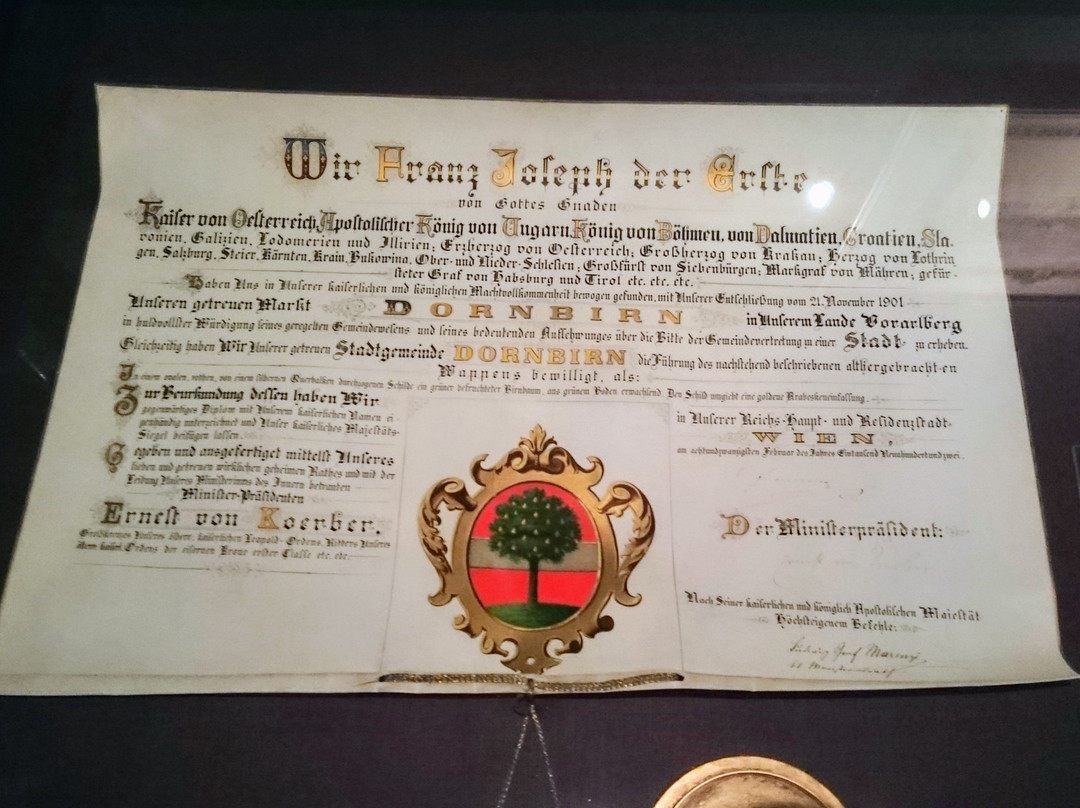 Wir Franz Joseph der Erste
von Gottes Gnaden
Kaiser von Oesterreich, Apostolischer König von Ungarn, König von Böhmen, von Dalmatien, Croatien, Sla-
vonien, Galizien, Lodomerien und Illirien; Erzherzog von Oesterreich; Großherzog von Krakau; Herzog von Lothrin
gen, Salzburg, Steier, Kärnten, Krain, Bukowina, Ober- und Nieder-Schlesien; Großfürst von Siebenbürgen; Markgraf von Mähren; gefür-
steter Graf von Habsburg und Tirol etc. etc. etc.
Haben Uns in Unserer kaiserlichen und königlichen Machtvollkommenheit bewogen gefunden, mit Unserer Entschließung vom 21. November 1901
Unseren getreuen Markt DORNBIRN in Unserem Lande Vorarlberg
in huldvollster Würdigung seines geregelten Gemeindewesens und seines bedeutenden Aufschwunges über die Bitte der Gemeindevertretung zu einer Stadt zu erheben.
Gleichzeitig haben Wir Unserer getreuen Stadtgemeinde DORNBIRN die Führung des nachstehend beschriebenen althergebrachten
Wappens bewilligt, als:
In einem ovalen, rothen, von einem silbernen Querbalken durchzogenen Schilde ein grüner befruchteter Birnbaum, aus grünem Boden erwachsend. Den Schild umgiebt eine goldene Arabeskeneinfassung.
Zur Beurkundung dessen haben Wir
gegenwärtiges Diplom mit Unserem kaiserlichen Namen ei-
genhändig unterzeichnet und Unser kaiserliches Majestäts-
Siegel beifügen lassen.
Gegeben und ausgefertiget mittelst Unseres
lieben und getreuen wirklichen geheimen Rathes und mit der
Leitung Unseres Ministeriums des Innern betrauten
Minister-Präsidenten
Ernest von Koerber,
Großkreuzes Unseres österr. kaiserlichen Leopold-Ordens, Ritters Unseres
österr. kaiserl. Ordens der eisernen Krone erster Classe etc. etc.
in Unserer Reichs-Haupt- und Residenzstadt
WIEN,
am achtundzwanzigsten Februar des Jahres Eintausend Neunhundertundzwei.
Der Ministerpräsident:
Nach Seiner kaiserlichen und königlich Apostolischen Majestät
Höchsteigenem Befehle:
Graf Marenzi,